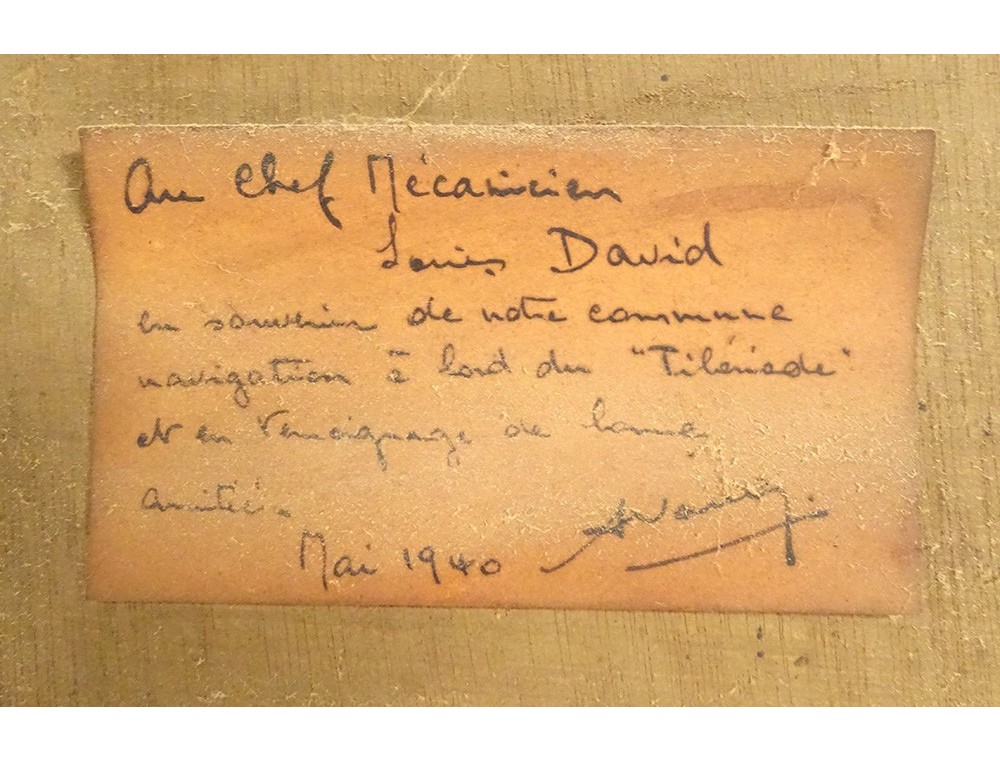 Au Chef Mécanicien
Louis David
en souvenir de notre commune
navigation à bord du "Tibériade"
et en témoignage de bonne
amitié.
Mai 1940